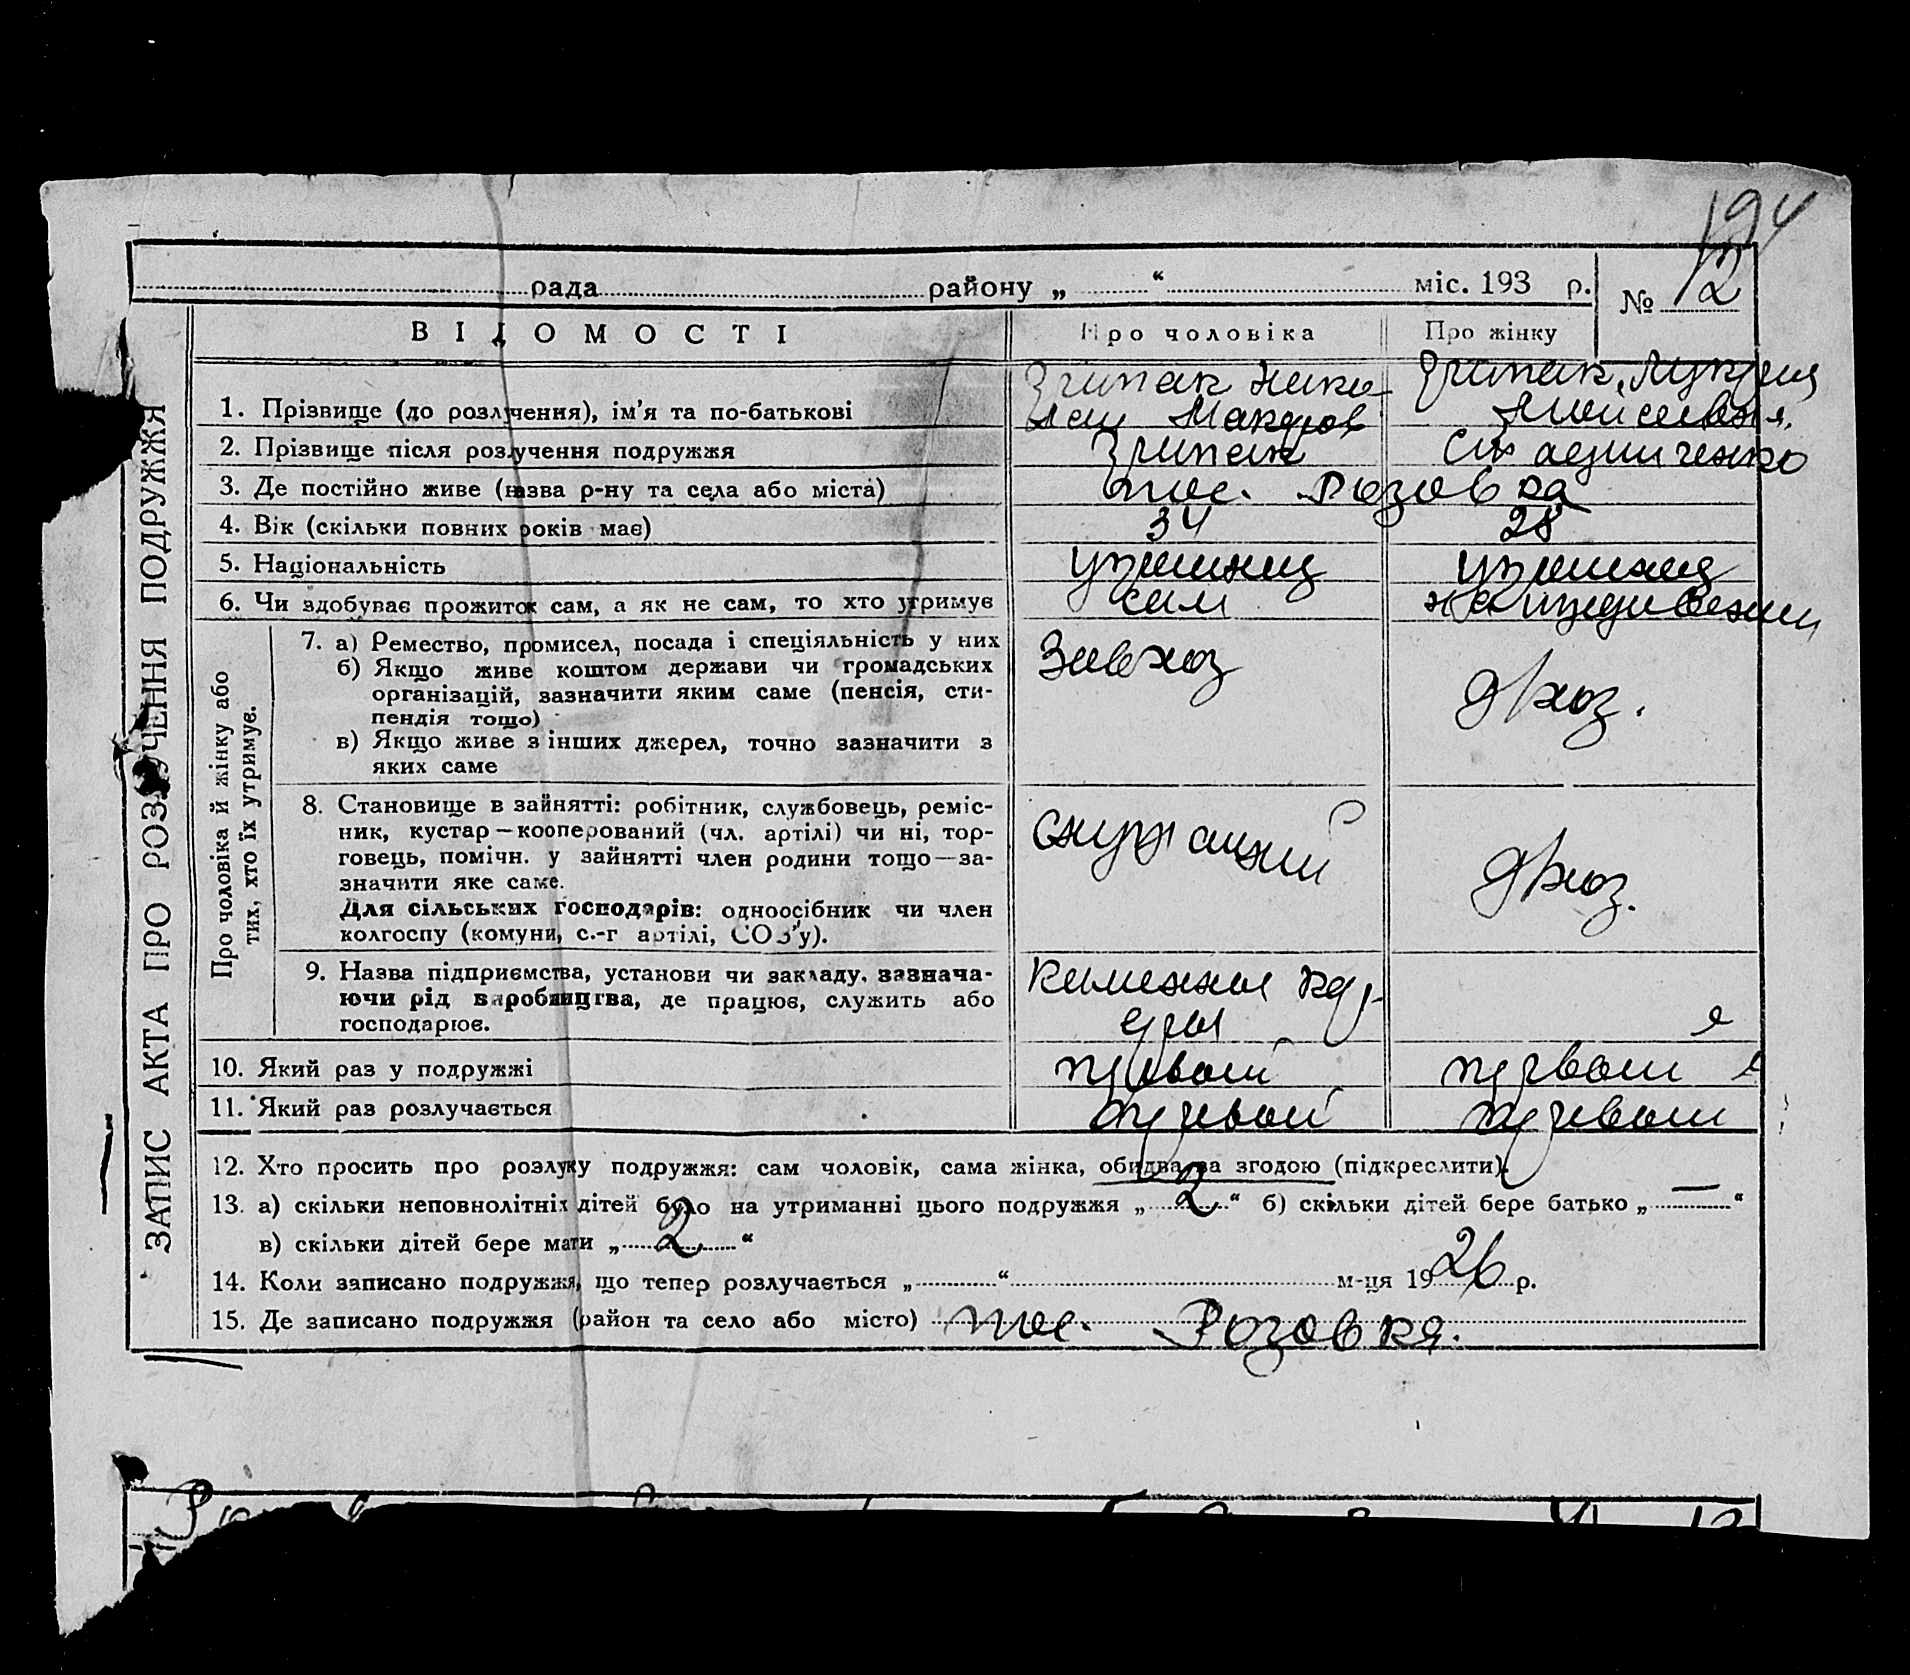 194
рада района „ “ міс. 193 р. № 12
ВІДОМОСТІ Про чоловіка Про жінку
ЗАПИС АКТА ПРО РОЗЛУЧЕННЯ ПОДРУЖЖЯ
1. Прізвище (до розлучення), ім’я та по-батькові
2. Прізвище після розлучення подружжя
3. Де постійно живе (назва р-ну та села або міста) пос. Розовка
4. Вік (скільки повних років має) 34 28
5. Національність украинец украинец
6. Чи здобуває прожиток сам, а як не сам, то хто утримує сам на иждивении
Про чоловіка й жінку або
тих, хто їх утримує.
7. а) Ремество, промисел, посада і спеціяльність у них Завхоз д/хоз.
б) Якщо живе коштом держави чи громадських
організацій, зазначити яким саме (пенсія, сти-
пендія тощо)
в) Якщо живе з інших джерел, точно зазначити з
яких саме
8. Становище в зайнятті: робітник, службовець, реміс-
ник, кустар — кооперований (чл. артілі) чи ні, тор- служащий
говець, помічн. у зайнятті член родини тощо — за- д/хоз.
значити яке саме.
Для сільських господарів: одноосібник чи член
колгоспу (комуни, с.-г артілі, СОЗ’у).
9. Назва підприємства, установи чи закладу, зазнача-
ючи рід виробництва, де працює, служить або
господарює.
10. Який раз у подружжі первый первый
11. Який раз розлучається первый первый
12. Хто просить про розлуку подружжя: сам чоловік, сама жінка, обидва за згодою (підкреслити).
13. а) скільки неповнолітніх дітей було на утриманні цього подружжя „ 2 “ б) скільки дітей бере батько „ — “
в) скільки дітей бере мати „ 2 “
14. Коли записано подружжя, що тепер розлучається „ “ м-ця 1926 р.
15. Де записано подружжя (район та село або місто) пос. Розовка.